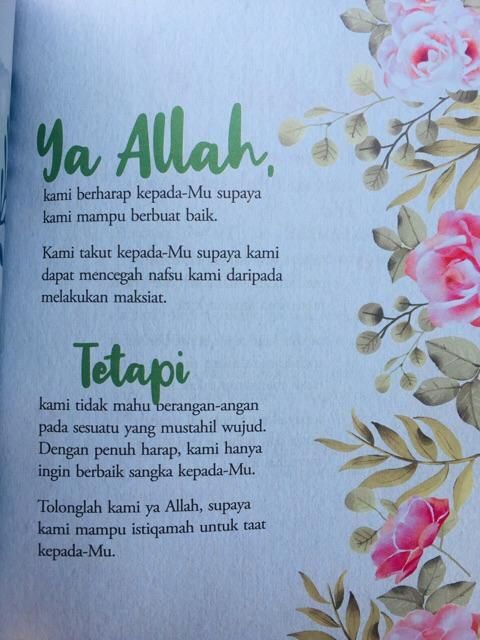 Ya Allah,
kami berharap kepada-Mu supaya
kami mampu berbuat baik.
Kami takut kepada-Mu supaya kami
dapat mencegah nafsu kami daripada
melakukan maksiat.
Tetapi
kami tidak mahu berangan-angan
pada sesuatu yang mustahil wujud.
Dengan penuh harap, kami hanya
ingin berbaik sangka kepada-Mu.
Tolonglah kami ya Allah, supaya
kami mampu istiqamah untuk taat
kepada-Mu.